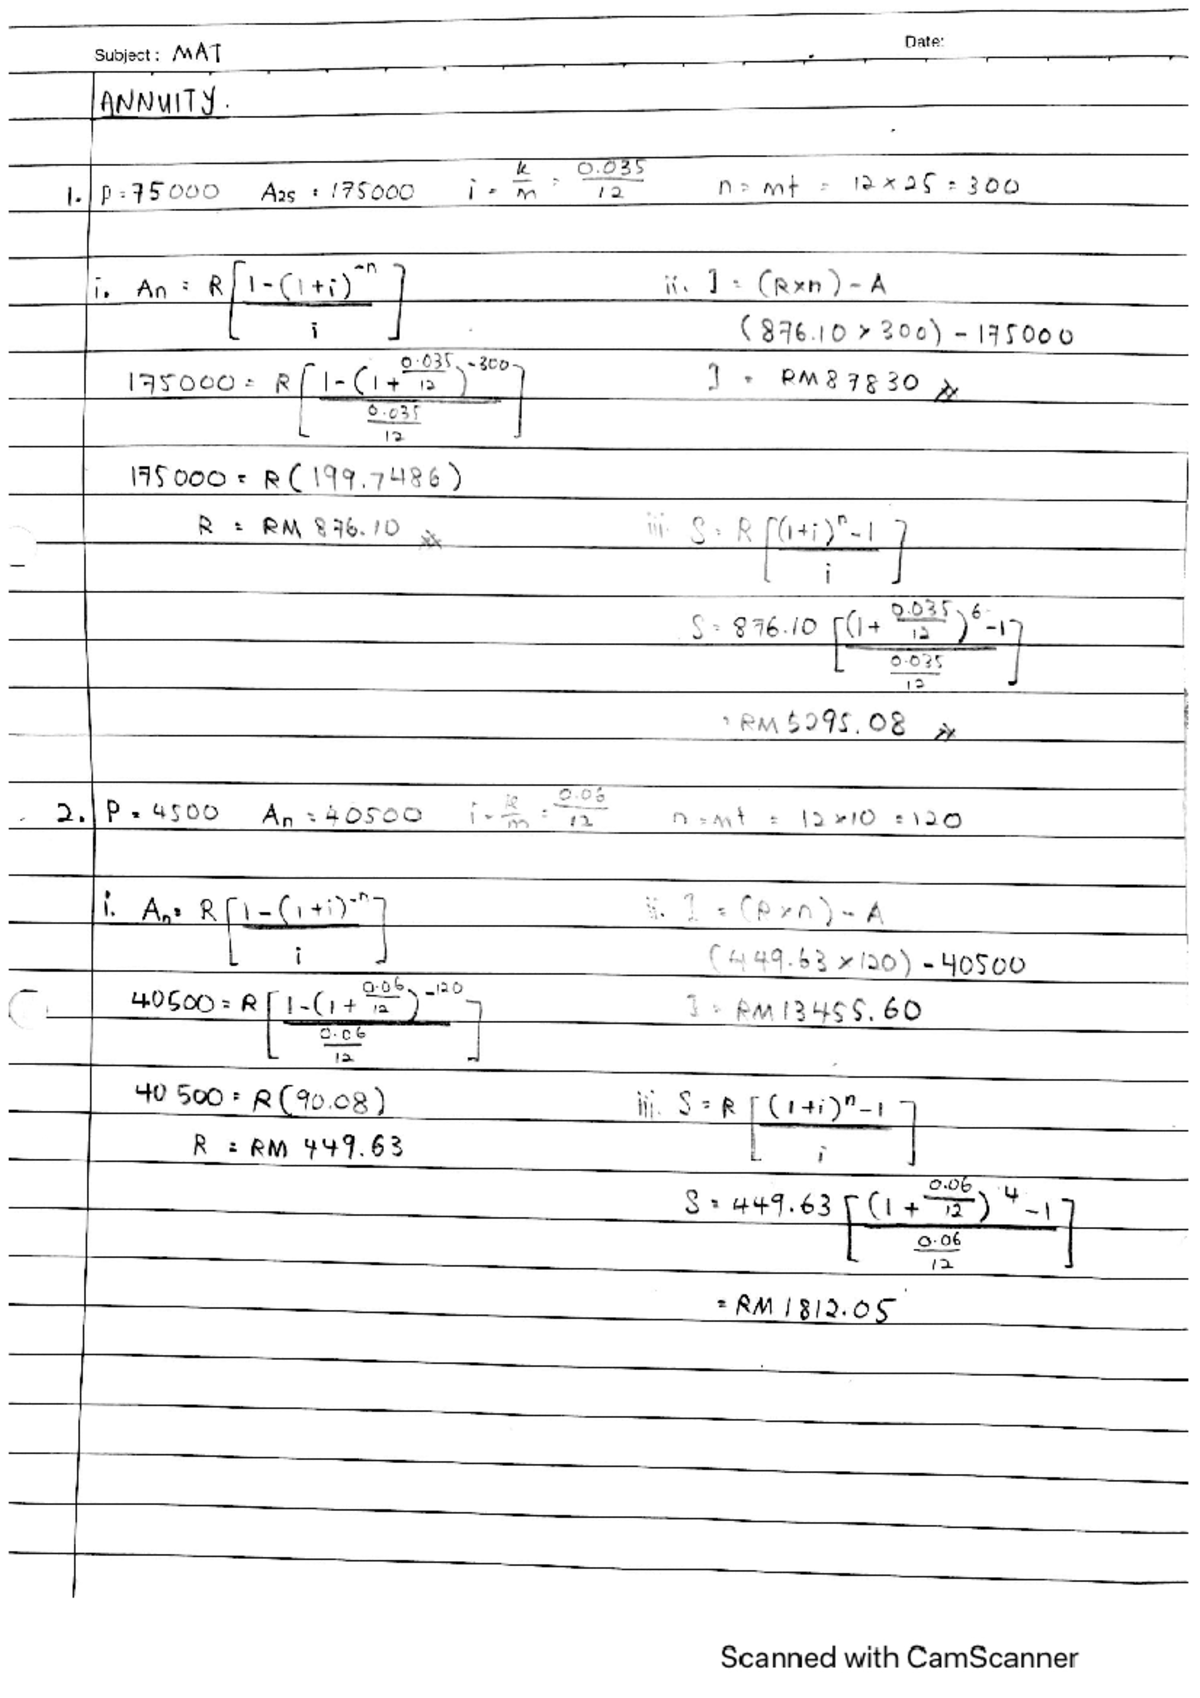 Subject: MAT
Date:
ANNUITY.
1. P = 75000 A25 = 175000 i = k/m = 0.035/12 n = mt = 12 × 25 = 300
i. An = R [1-(1+i)^-n / i]
175000 = R [1-(1+0.035/12)^-300 / 0.035/12]
175000 = R (199.7486)
R = RM 876.10
ii. I = (R×n) - A
(876.10 × 300) - 175000
I = RM 87830
iii. S = R [(1+i)^n - 1 / i]
S = 876.10 [(1+0.035/12)^6 - 1 / 0.035/12]
= RM 5295.08
2. P = 4500 An = 40500 i = k/m = 0.06/12 n = mt = 12 × 10 = 120
i. An = R [1-(1+i)^-n / i]
40500 = R [1-(1+0.06/12)^-120 / 0.06/12]
40 500 = R (90.08)
R = RM 449.63
ii. I = (R×n) - A
(449.63 × 120) - 40500
I = RM 13455.60
iii. S = R [(1+i)^n - 1 / i]
S = 449.63 [(1+0.06/12)^4 - 1 / 0.06/12]
= RM 1812.05
Scanned with CamScanner